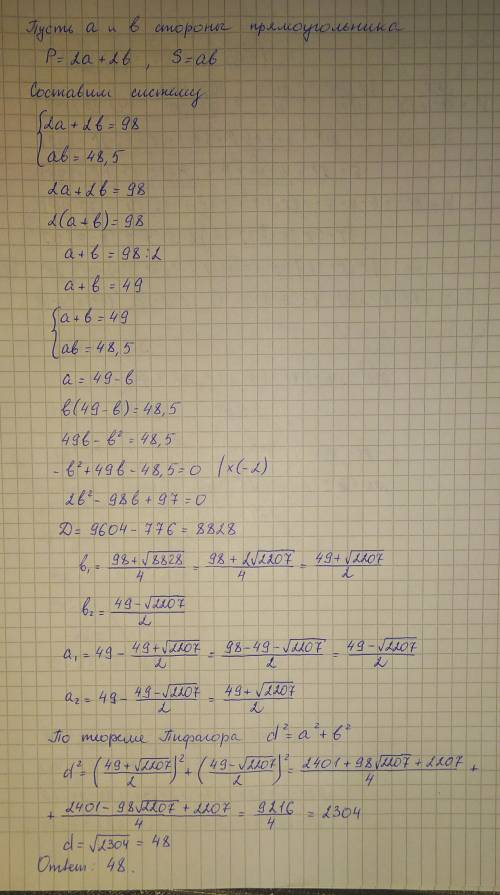 Пусть а и в стороны прямоугольника
P = 2a + 2в , S = aв
Составим систему
{2a + 2в = 98
{aв = 48,5
2a + 2в = 98
2(a + в) = 98
a + в = 98 : 2
a + в = 49
{a + в = 49
{aв = 48,5
a = 49 - в
в(49 - в) = 48,5
49в - в² = 48,5
- в² + 49в - 48,5 = 0 | ×(-2)
2в² - 98в + 97 = 0
D = 9604 - 776 = 8828
в₁ = (98 + √8828)/4 = (98 + 2√2207)/4 = (49 + √2207)/2
в₂ = (49 - √2207)/2
a₁ = 49 - (49 + √2207)/2 = (98 - 49 - √2207)/2 = (49 - √2207)/2
a₂ = 49 - (49 - √2207)/2 = (49 + √2207)/2
По теореме Пифагора d² = a² + в²
d² = ((49 + √2207)/2)² + ((49 - √2207)/2)² = (2401 + 98√2207 + 2207)/4 +
+ (2401 - 98√2207 + 2207)/4 = 9216/4 = 2304
d = √2304 = 48
Ответ: 48.